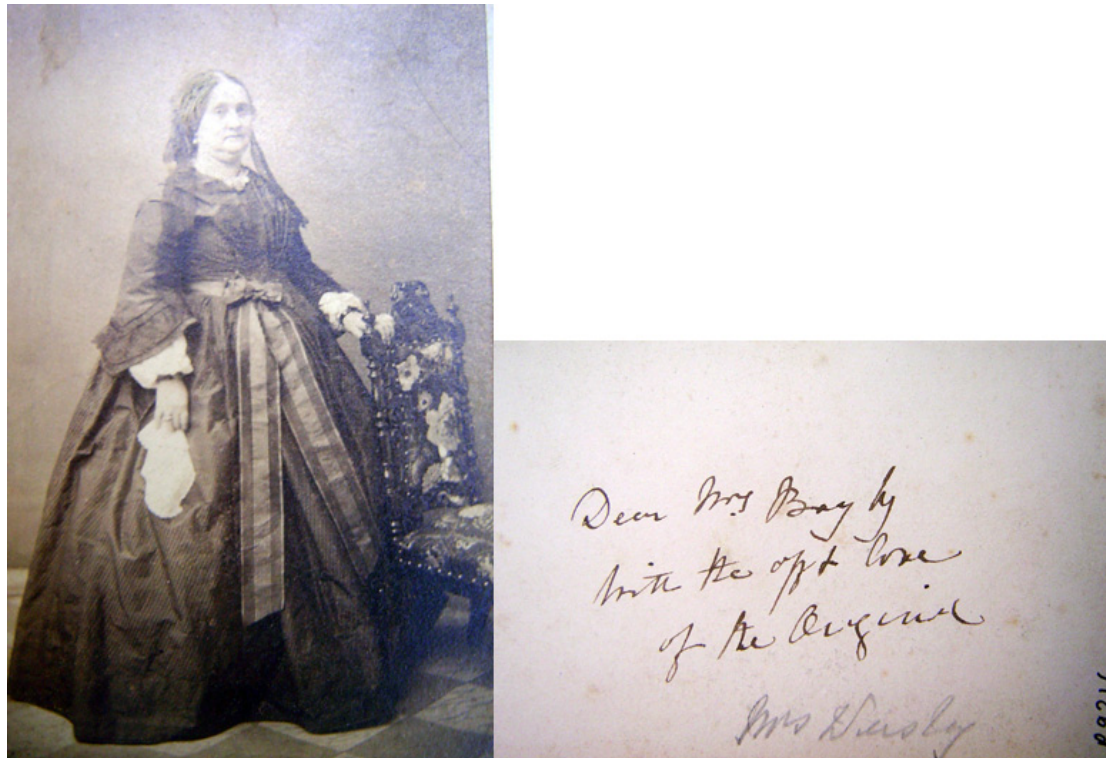 Dear Mrs Bayly
With the afft love
of the Original
Mrs